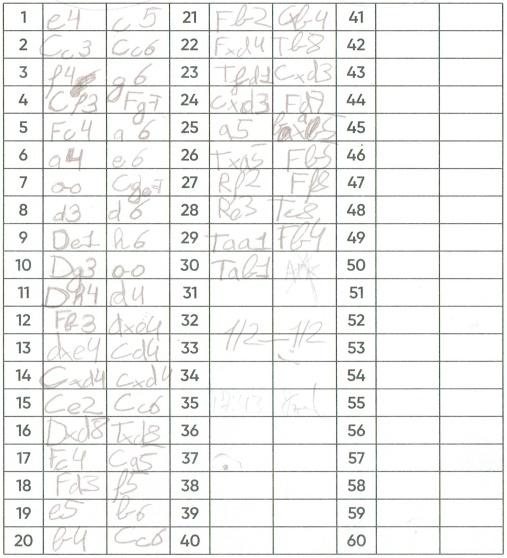 1 e4 c5 21 Fb2 Cb4 41
2 Cc3 Cc6 22 Fxd4 Tb8 42
3 f4 g6 23 Tfd1 Cxd3 43
4 Cf3 Fg7 24 Cxd3 Fd7 44
5 Fc4 a6 25 a5 45
6 a4 e6 26 Txa5 Fb5 46
7 oo Cge7 27 Rf2 Ff8 47
8 d3 d6 28 Re3 Tc8 48
9 De1 h6 29 Taa1 Fb4 49
10 Dg3 oo 30 Tab1 50
11 Dh4 d4 31 51
12 Fb3 dxe4 32 52
13 dxe4 Cd4 33 1/2 — 1/2 53
14 Cxd4 cxd4 34 54
15 Ce2 Cc6 35 55
16 Dxd8 Txd8 36 56
17 Fc4 Ca5 37 57
18 Fd3 f5 38 58
19 e5 b6 39 59
20 b4 Cc6 40 60